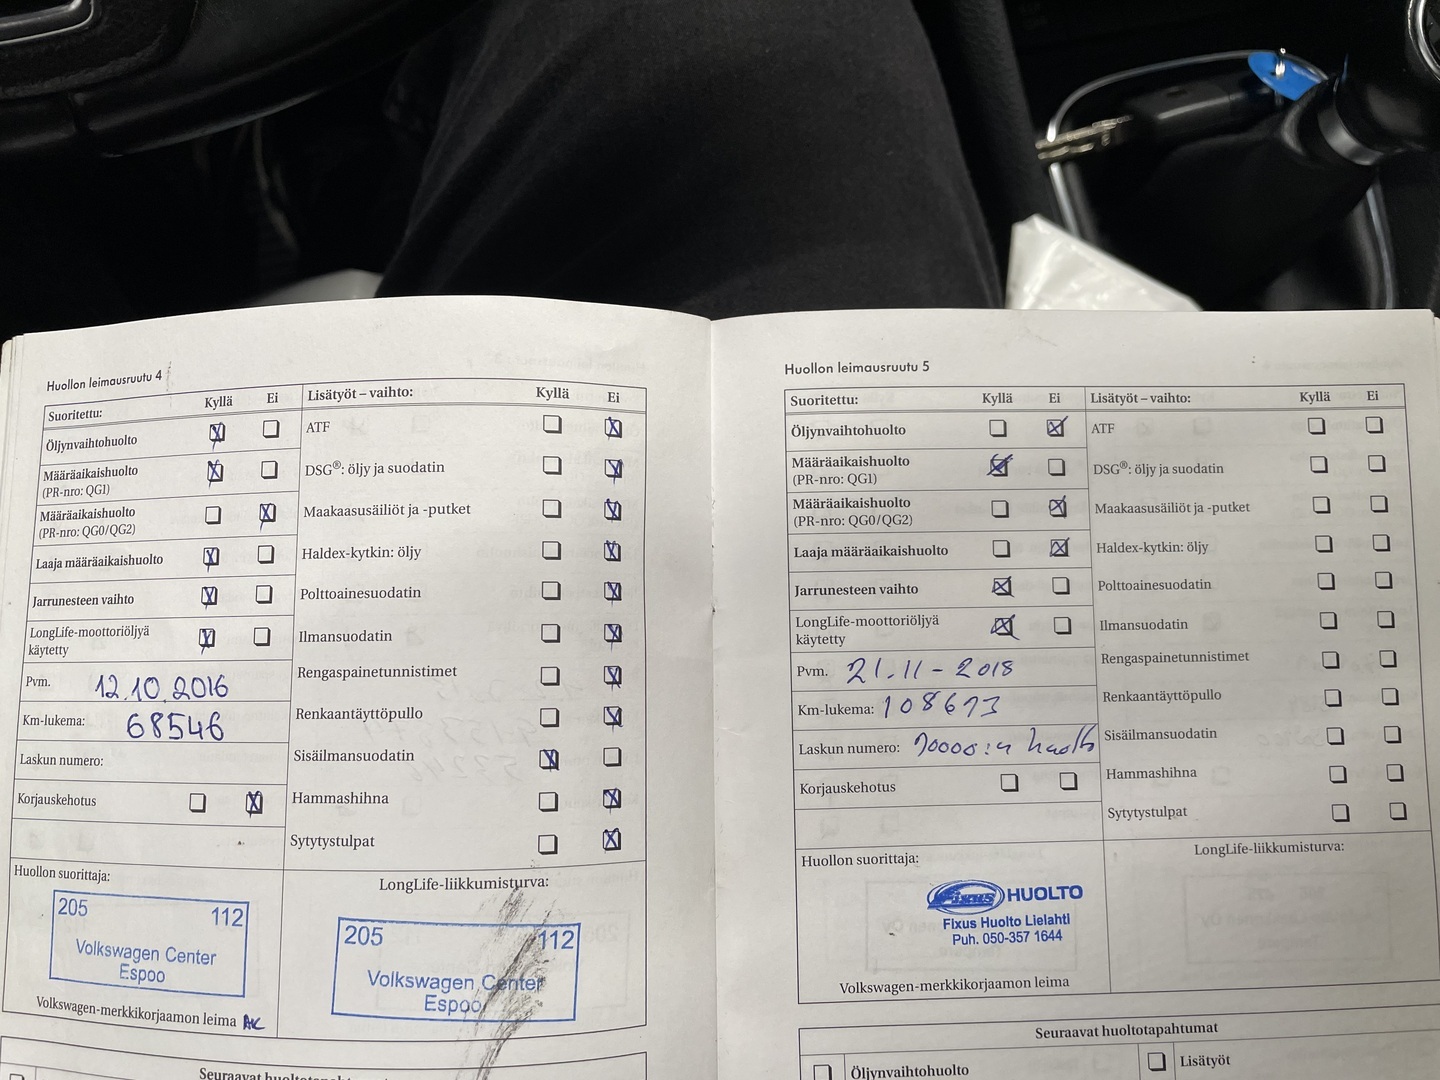 Huollon leimausruutu 4
Suoritettu: Kyllä Ei
Öljynvaihtohuolto
Määräaikaishuolto
(PR-nro: QG1)
Määräaikaishuolto
(PR-nro: QG0/QG2)
Laaja määräaikaishuolto
Jarrunesteen vaihto
LongLife-moottoriöljyä
käytetty
Pvm. 12.10.2016
Km-lukema: 68546
Laskun numero:
Korjauskehotus
Lisätyöt – vaihto: Kyllä Ei
ATF
DSG®: öljy ja suodatin
Maakaasusäiliöt ja -putket
Haldex-kytkin: öljy
Polttoainesuodatin
Ilmansuodatin
Rengaspainetunnistimet
Renkaantäyttöpullo
Sisäilmansuodatin
Hammashihna
Sytytystulpat
Huollon suorittaja:
205 112
Volkswagen Center
Espoo
Volkswagen-merkkikorjaamon leima
LongLife-liikkumisturva:
205 112
Volkswagen Center
Espoo
Seuraavat huoltotapahtumat
Huollon leimausruutu 5
Suoritettu: Kyllä Ei
Öljynvaihtohuolto
Määräaikaishuolto
(PR-nro: QG1)
Määräaikaishuolto
(PR-nro: QG0/QG2)
Laaja määräaikaishuolto
Jarrunesteen vaihto
LongLife-moottoriöljyä
käytetty
Pvm. 21.11-2018
Km-lukema: 108673
Laskun numero:
Korjauskehotus
Lisätyöt – vaihto: Kyllä Ei
ATF
DSG®: öljy ja suodatin
Maakaasusäiliöt ja -putket
Haldex-kytkin: öljy
Polttoainesuodatin
Ilmansuodatin
Rengaspainetunnistimet
Renkaantäyttöpullo
Sisäilmansuodatin
Hammashihna
Sytytystulpat
Huollon suorittaja:
Fixus HUOLTO
Fixus Huolto Lielahti
Puh. 050-357 1644
Volkswagen-merkkikorjaamon leima
LongLife-liikkumisturva:
Seuraavat huoltotapahtumat
Öljynvaihtohuolto
Lisätyöt